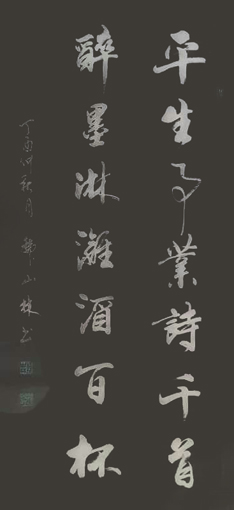 平生事業詩千首
醉墨淋漓酒百杯
丁酉仲秋月 鄭山林书